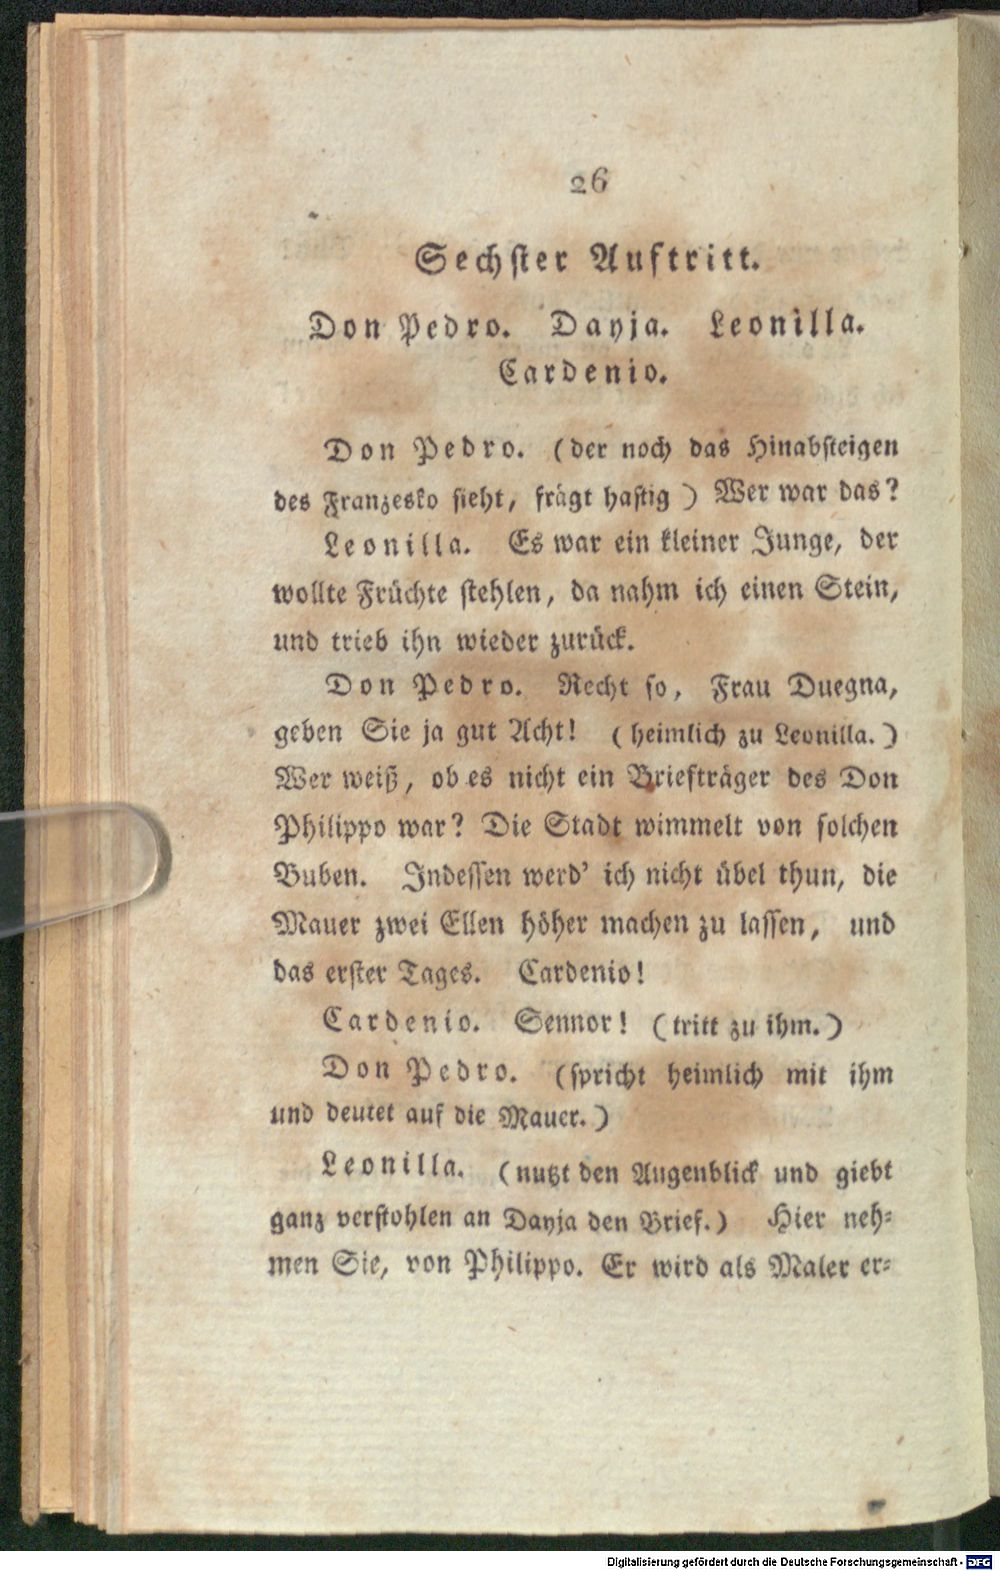 26
Sechster Auftritt.
Don Pedro. Dayja. Leonilla.
Cardenio.
Don Pedro. (der noch das Hinabsteigen
des Franzesko sieht, frägt hastig) Wer war das?
Leonilla. Es war ein kleiner Junge, der
wollte Früchte stehlen, da nahm ich einen Stein,
und trieb ihn wieder zurück.
Don Pedro. Recht so, Frau Duegna,
geben Sie ja gut Acht! (heimlich zu Leonilla.)
Wer weiß, ob es nicht ein Briefträger des Don
Philippo war? Die Stadt wimmelt von solchen
Buben. Indessen werd' ich nicht übel thun, die
Mauer zwei Ellen höher machen zu lassen, und
das erster Tages. Cardenio!
Cardenio. Sennor! (tritt zu ihm.)
Don Pedro. (spricht heimlich mit ihm
und deutet auf die Mauer.)
Leonilla. (nutzt den Augenblick und giebt
ganz verstohlen an Dayja den Brief.) Hier neh-
men Sie, von Philippo. Er wird als Maler er-
Digitalisierung gefördert durch die Deutsche Forschungsgemeinschaft - DFG